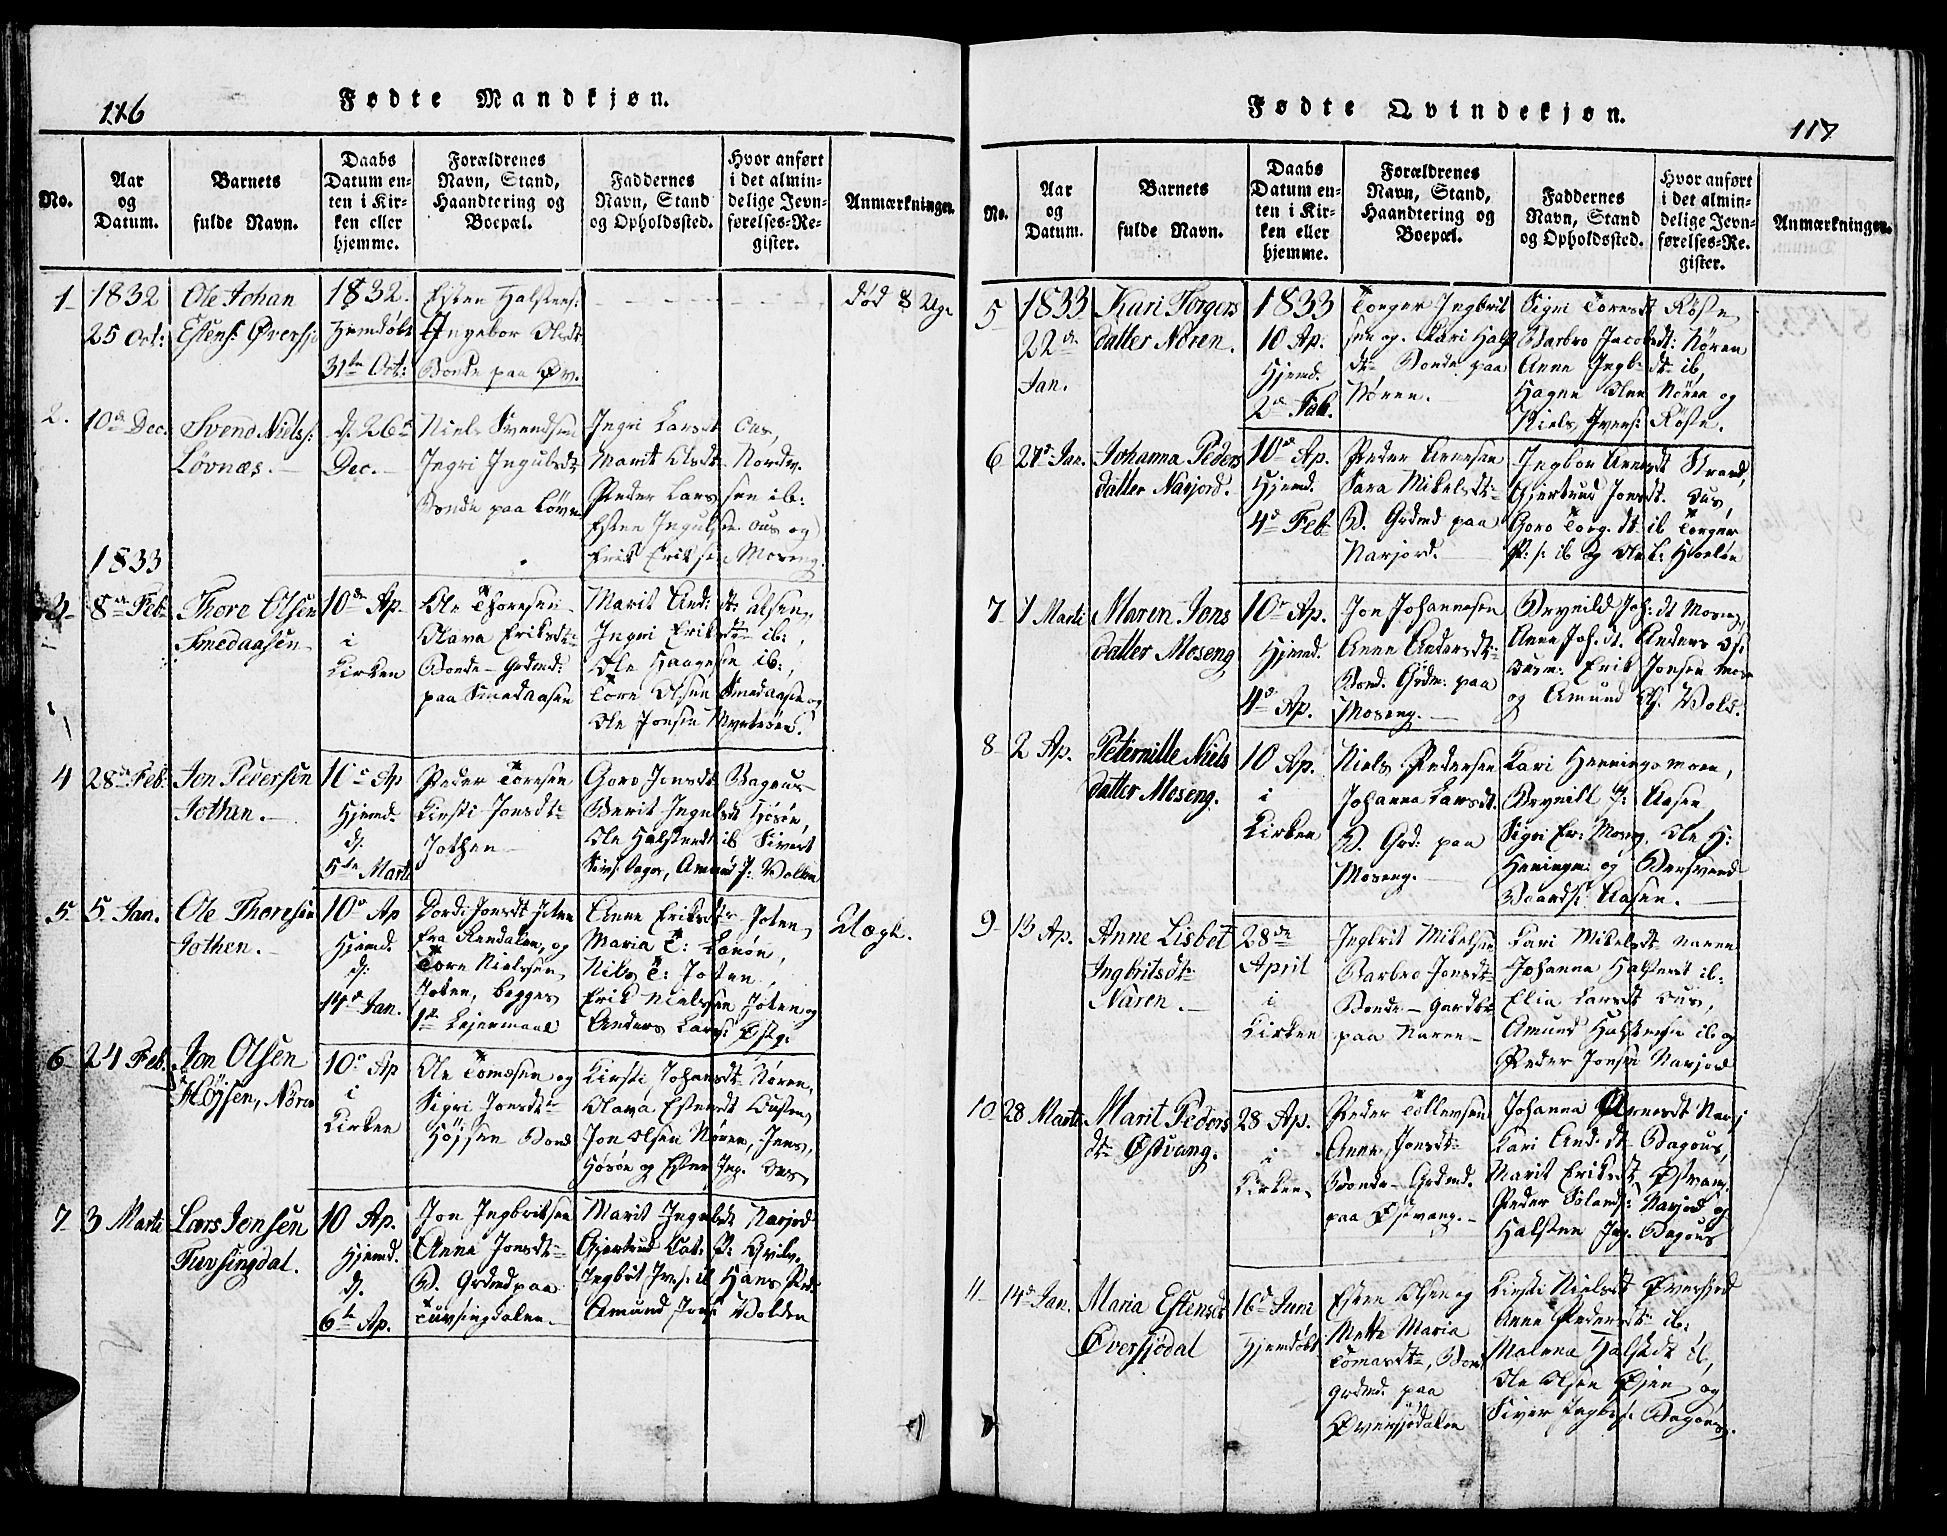 116
Fødte Mandkjøn.
No.
Aar
og
Datum.
Barnets
fulde Navn.
Daabs
Datum en-
ten i Kir-
ken eller
hjemme.
Forældrenes
Navn, Stand,
Haandtering og
Boepæl.
Faddernes
Navn, Stand
og Opholdssted.
Hvor anført
i det almin-
delige Jevn-
førelses-Re-
gister.
Anmærkninger.
1
1832
25 Oct:
Ole Johan
Estens: Øversjø
1832.
Hjemdøbt
31te Oct:
Esten Halstens:
Ingebor Olsdt
Bonde paa Øv.
død 8 Uge
2.
10de Dec.
Svend Niels:
Løvnæs.
d. 26de
Dec.
Niels Svendsen
Ingri Ingulsdt
Bonde paa Løvn
Ingri Larsdt Ous,
Marit Olsdt Nordv.
Peder Larssen ib:
Esten Ingulsen Ous og
Erik Eriksen Moseng.
1833
3
8de Feb.
Thore Olsen
Smedaasen
10de Ap.
i
Kirken
Ole Thoresen
Olava Eriksdt
Bonde-Grdmd:
paa Smedaasen
Marit And: dt
Ingri Eriksdt ib:,
Ole Haagensen ib:,
Tore Olsen Smedaasen og
Ole Jonsen
4
28de Feb.
Jon Pedersen
Jothen.
10de Ap
Hjemd.
d:
5te Marti
Peder Toresen
Kirsti Jonsdt
Jothen
Goro Jonsdt Bagous
Berit Ingulsdt Hosøn,
Ole Halstensen ib Sivert
Amund J: Volden
5
5 Jan.
Ole Thoresen
Jothen.
10de Ap
Hjemd.
d:
14de Jan.
Dordi Jonsdt Joten
fra Rendalen, og
Tore Nielsen,
Joten, begges
1ste Leiermaal
Anne Eriksdtr Joten,
Maria T:
Nils T: Joten,
Erik Nielsen Joten og
Anders Lars:
Uægte.
6
24 Feb.
Jon Olsen
Høysen, Nøren
10de Ap
i
Kirken
Ole Tomesen og
Sigri Jonsdt
Høysen Bond
Kirsti Johansdt Nøren,
Olava Estensdt Ousten,
Jon Olsen Nøren, Jens,
Hosøn og Esten Ing. Ous
7
3 Marti
Lars Jensen
Tuvsingdal.
10 Ap.
Hjemd.
d.
6te Ap.
Jon Ingbritsen
Anne Jonsdt
B. Grdmd paa
Tuvsingdalen.
Marit Ingulsdt Narjord
Gjertrud Cat: P:
Ingbrit Ivers: ib Hans Ped:
Amund Jons: Volden
117
Fødte Qvindekjøn.
No.
Aar
og
Datum.
Barnets
fulde Navn.
Daabs
Datum en-
ten i Kir-
ken eller
hjemme.
Forældrenes
Navn, Stand,
Haandtering og
Boepæl.
Faddernes
Navn, Stand
og Opholdssted.
Hvor anført
i det almin-
delige Jevn-
førelses-Re-
gister.
Anmærkninger.
5
1833
22de
Jan.
Kari Torgers
datter Nøren.
1833
10 Ap.
Hjemd.
2de Feb.
Torger Ingbrit
sen og Kari Hals
dt Bonde paa
Nøren.
Sigri Toresdt Røste
Barbro Jacobsdt: Nøren
Anne Ingb: dt ib,
Hagen Olsen Nøren og
Niels Ivers: Røste.
6
27de Jan.
Johanna Peders
datter Narjord.
10de Ap.
Hjemd.
4de Feb
Peder Arnesen
Sara Mikelsdt
B. Grdmd paa
Narjord.
Ingbor Arnesdt Strand,
Gjertrud Jonsdt. Ous,
Goro Torg. dt ib Torger
P: s: ib og Ole
7
1 Marti
Maren Jons
datter Moseng
10de Ap.
Hjemd.
4de Ap.
Jon Johannesen
Anne Andersdt
Bond. Grdm: paa
Moseng.
Brynild Joh: dt Moseng,
Anne Joh: dt. Anders
Erik Jonsen Mos
og Amund Vold.
8
2 Ap.
Peternille Niels
datter Moseng.
10 Ap.
i
Kirken
Niels Pedersen
Johanna Larsdt.
B. Grd: paa
Moseng.
Kari Henningsmoen,
Brynild P: Aasen,
Sigri Er: Moseng, Ole H:
Heningm: og Bersvend
Baards: Aasen.
9
13 Ap.
Anne Lisbet
Ingbritsdt
Naren.
28de
April
i
Kirken
Ingbrit Mikelsen
Barbro Jonsdt
Bonde-Gardbr
paa Naren
Kari Mikelsdt Naren
Johanna Halstensdt ib:
Elin Larsdt Ous,
Amund Halstensen ib: og
Peder Jonsen Narjord
10
28 Marti
Marit Peders
dt Østvang.
28 Ap.
i
Kirken
Peder Tollevsen
Anne Jonsdt
Bonde-Grdmd.
paa Østvang.
Johanna Arnesdt Narj
Kari And: dt Bagous,
Marit Eriksdt Østvang.
Peder Narjord og
Halsten Ing. Bagous
11
14de Jan.
Maria Estensdt
Øversjødal
16de Juni
Hjemdøbt
Esten Olsen og
Mette Maria
Tomasdt, Bond
grdmd. paa
Øversjødalen
Kirsti Nielsdt Øversjød
Anne Pedersdt ib:
Malena Halstdt ib,
Ole Olsen Øjen og
Siver Ingbrs: Bagous.